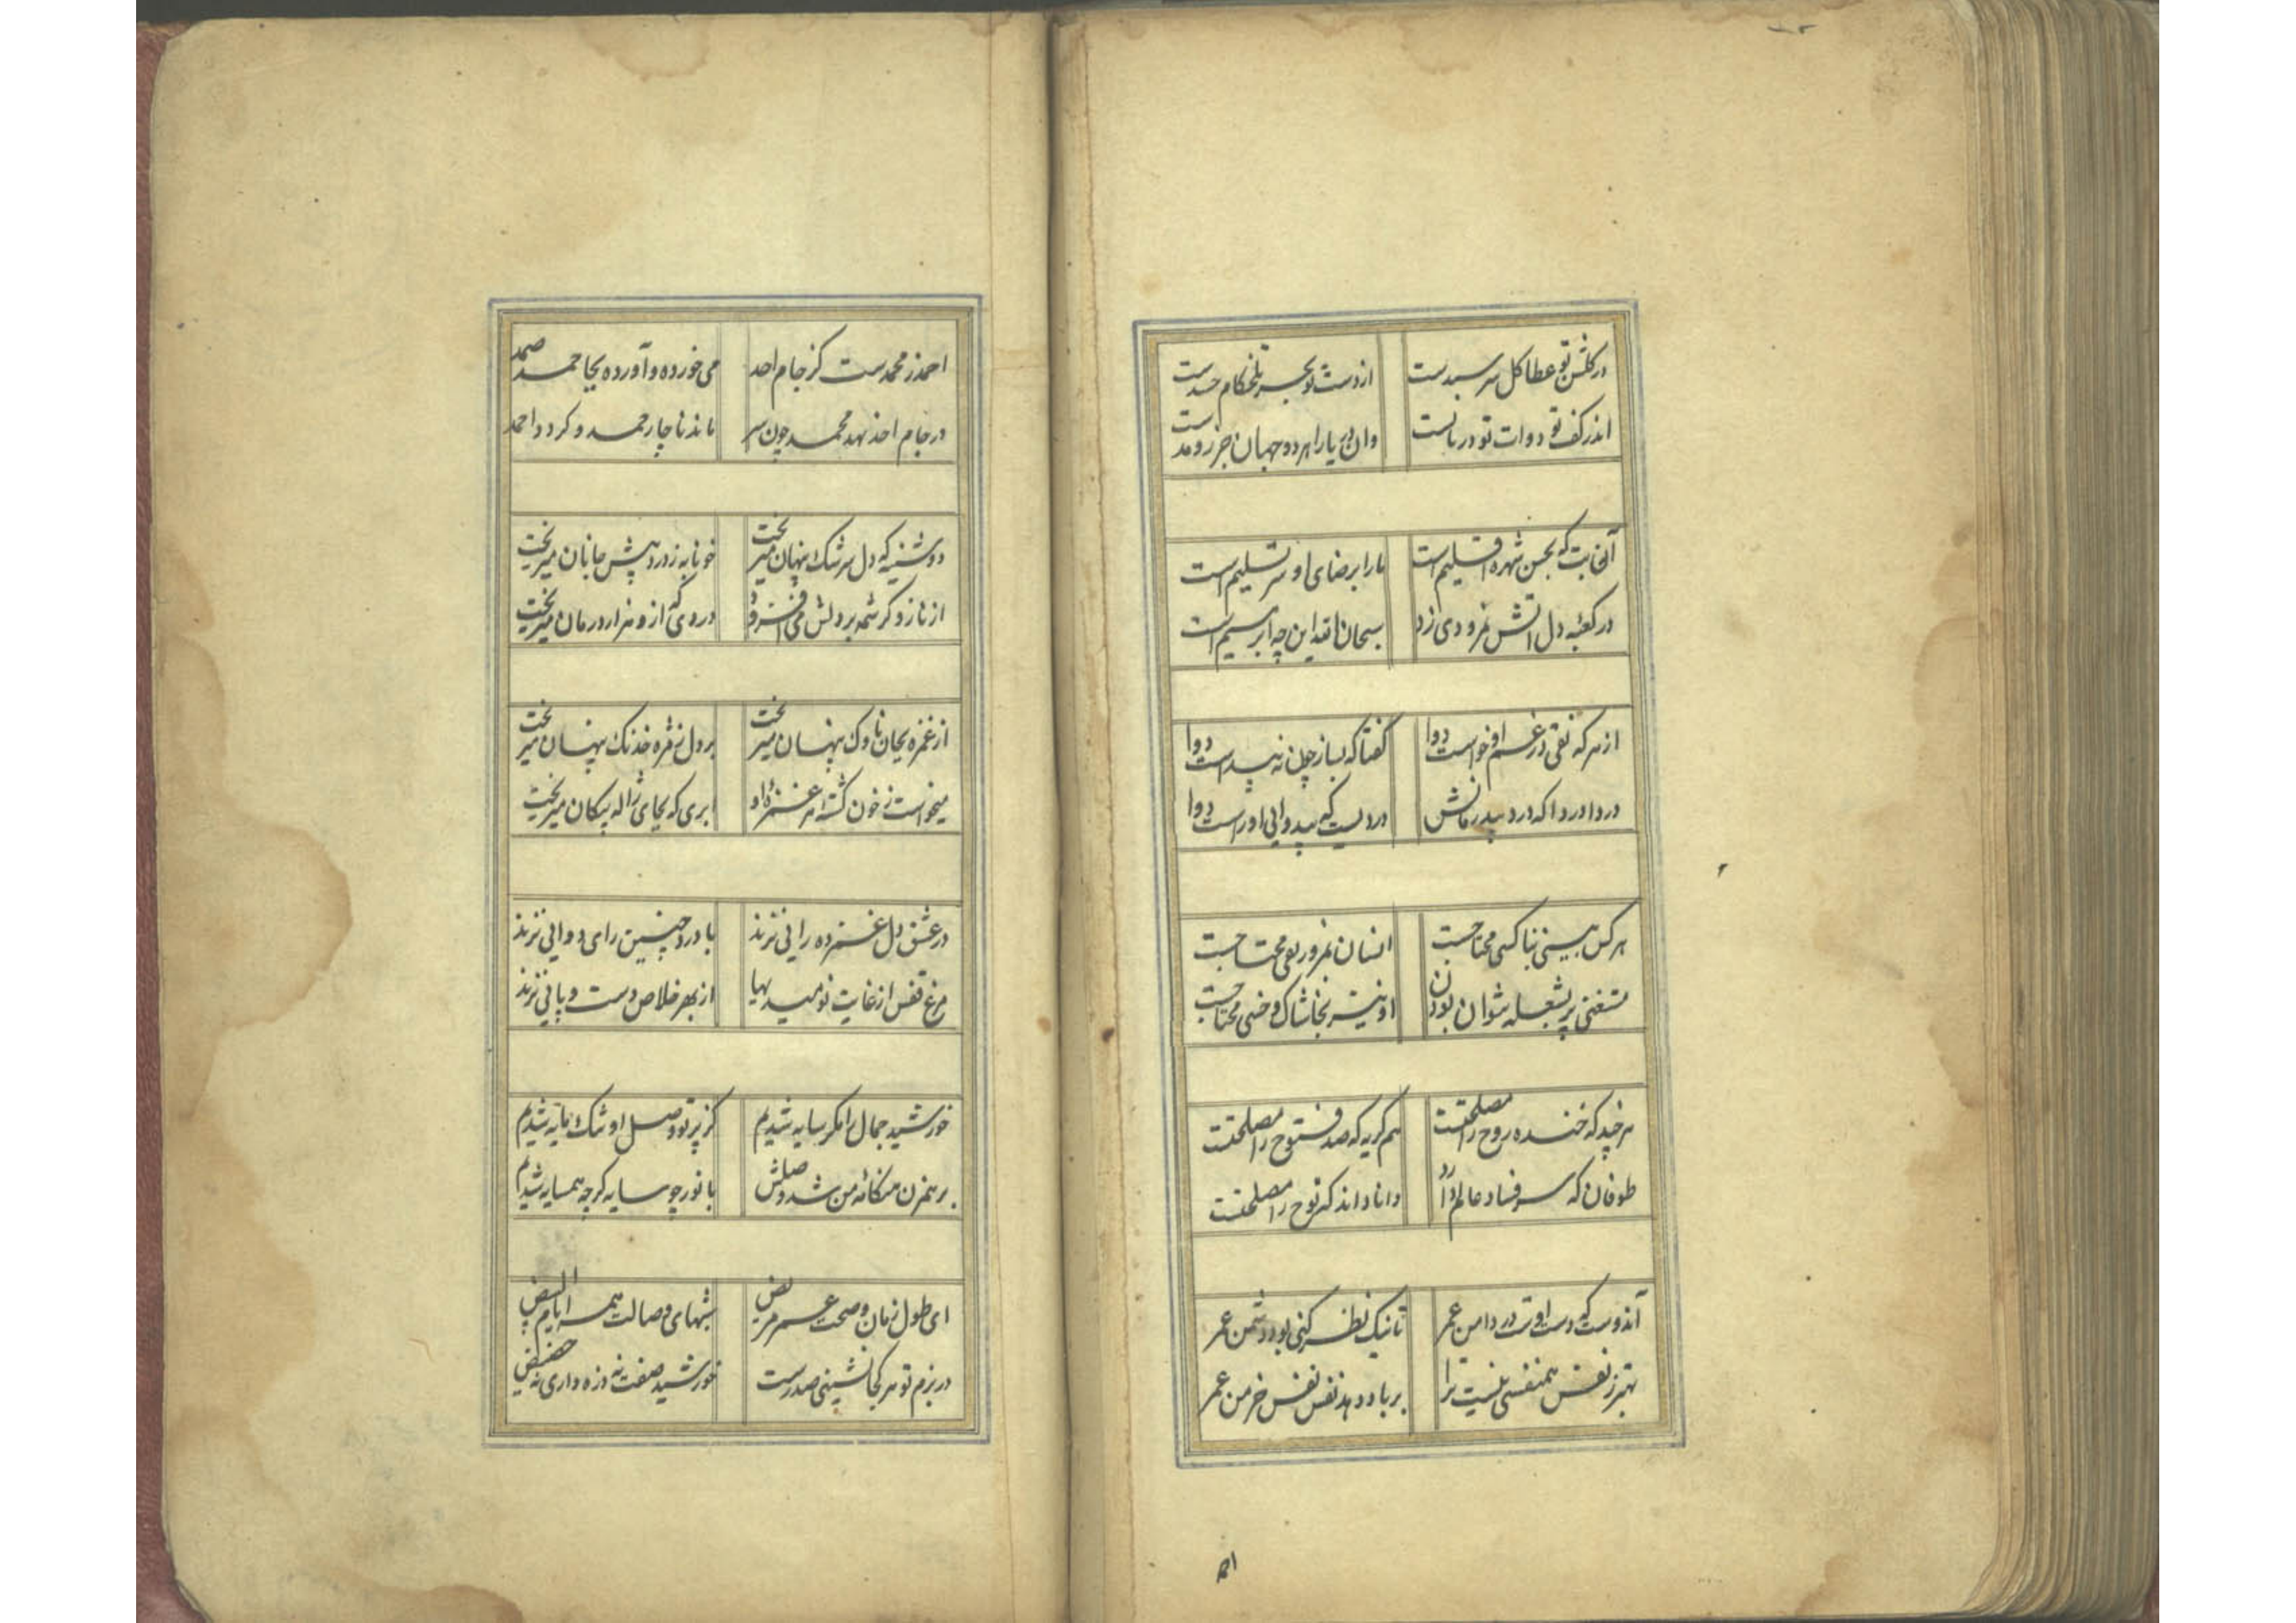 در گلشن تو عطا گل سر سبدست از دست تو بحر تلخکام حسدست
اندر کف تو دوات تو دریائست وان دریا را هر دو جهان جزر و مدست
آنخا بت که بحسن شهره اقلیم است ما را برضای او سر تسلیم است
در کعبه دل آتش نمرودی زد سبحان الله این چه ابراهیم است
از هر که نقی در غم او خواست دوا گفتا که بساز چون نه پیداست دوا
دردا دردا که درد بیدرمانش دردیست که بیدوایی او راست دوا
هر کس بینی بنا کسی محتاجست انسان نمرور بغی محتاجست
مستغنی پر شعله نتوان بودن او نیز بخاشاک و خسی محتاجست
هر چند که خنده روح را مصلحتست هم گریه که صد فتوح را مصلحتست
طوفان که سر فساد عالم دارد دانا داند که نوح را مصلحتست
آندوست که دست اوست در دامن عمر تا نیک نظر کنی بود دشمن عمر
بهتر ز نفس همنفسی نیست ترا بر باد دهد نفس نفس خرمن عمر
احمد ز محمدست کز جام احد می خورده و آورده بجا حمد صمد
در جام احد نهد محمد چون سر ماند ناچار حمد و گردد احمد
دوشینه که دل سرشک پنهان میریخت خونابه ز درد پیش جانان میریخت
از ناز و کرشمه بر دلش می افزود دردی که ازو هزار درمان میریخت
از غمزه بجان ناوک پنهان میریخت بر دل ز مژه خدنک پنهان میریخت
میخواست ز خون کشته هر غمزه او ابری که بجای ژاله پیکان میریخت
در عشق دل غمزده رائی نزند با درد چنین رای دوائی نزند
مرغ قفس از غایت نومیدیها از بهر خلاص دست و پائی نزند
خورشید جمال را مگر سایه شدیم کز پرتو وصل او شک مایه شدیم
بر همزن هنگامه من شد وصلش با نور چو سایه گر چه همسایه شدیم
ای طول زمان و صحت عمر مریض شبهای وصالت همه ایام البیض
در بزم تو هر کجا نشینی صدرست خورشید صفت نه ذره داری نه حضیض
احمد